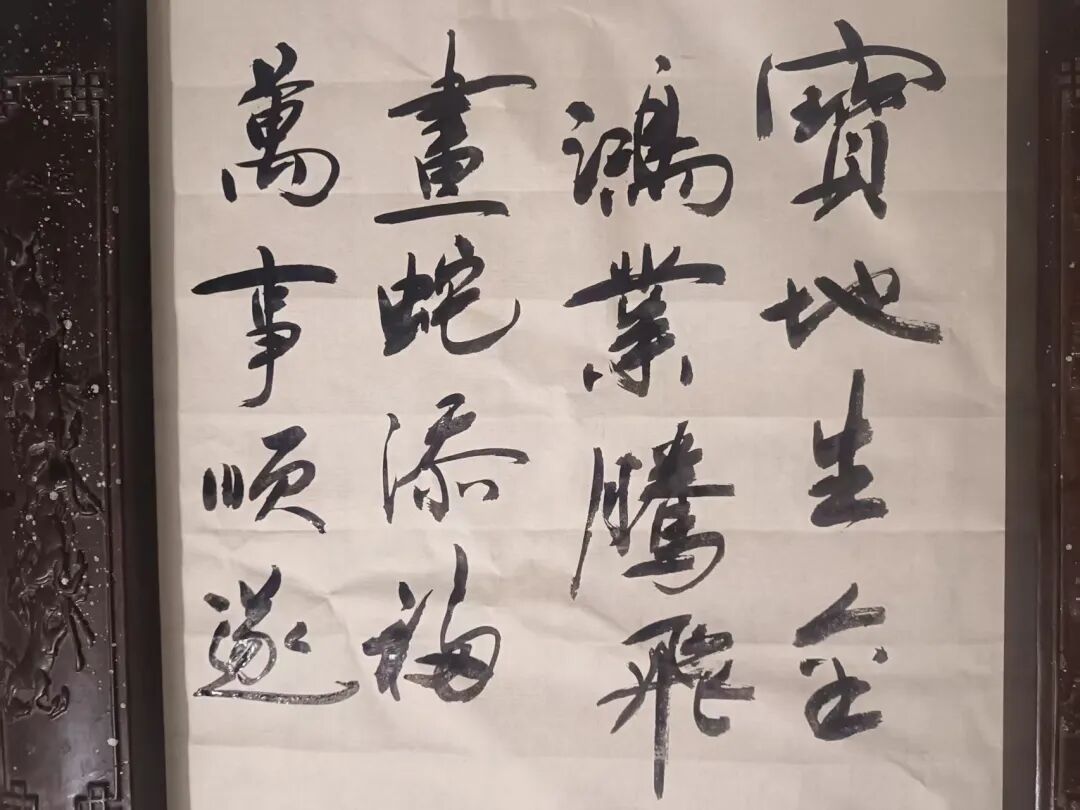 寶地生金
鴻業騰飛
畫蛇添福
萬事順遂